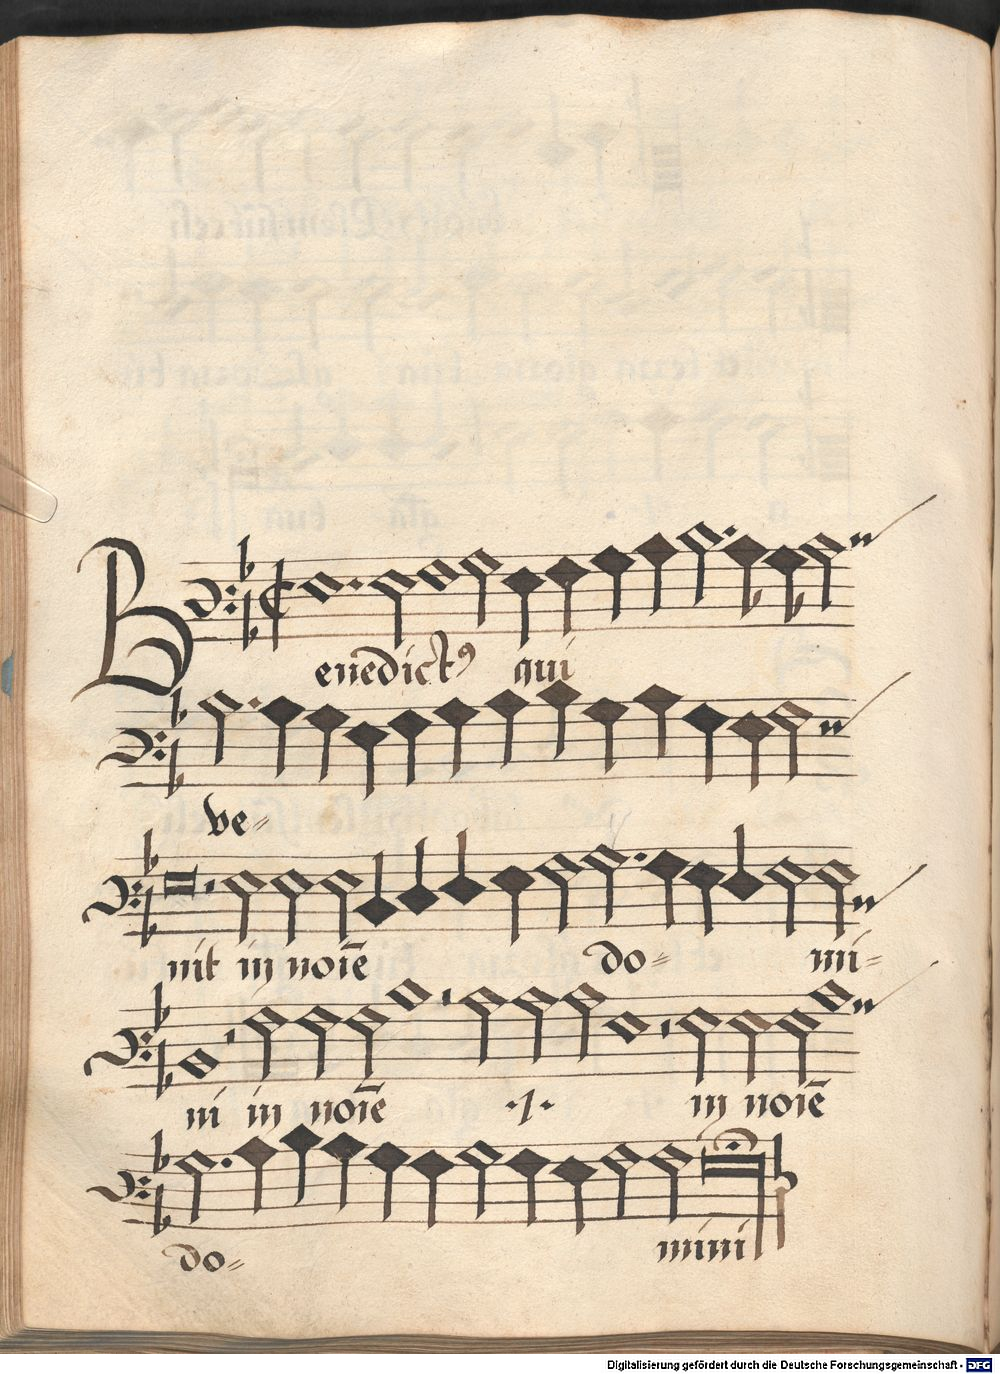 Benedictꝰ qui
ve-
nit in noīe do- mi-
ni in noīe ·/· in noīe
do- mini
Digitalisierung gefördert durch die Deutsche Forschungsgemeinschaft - DFG